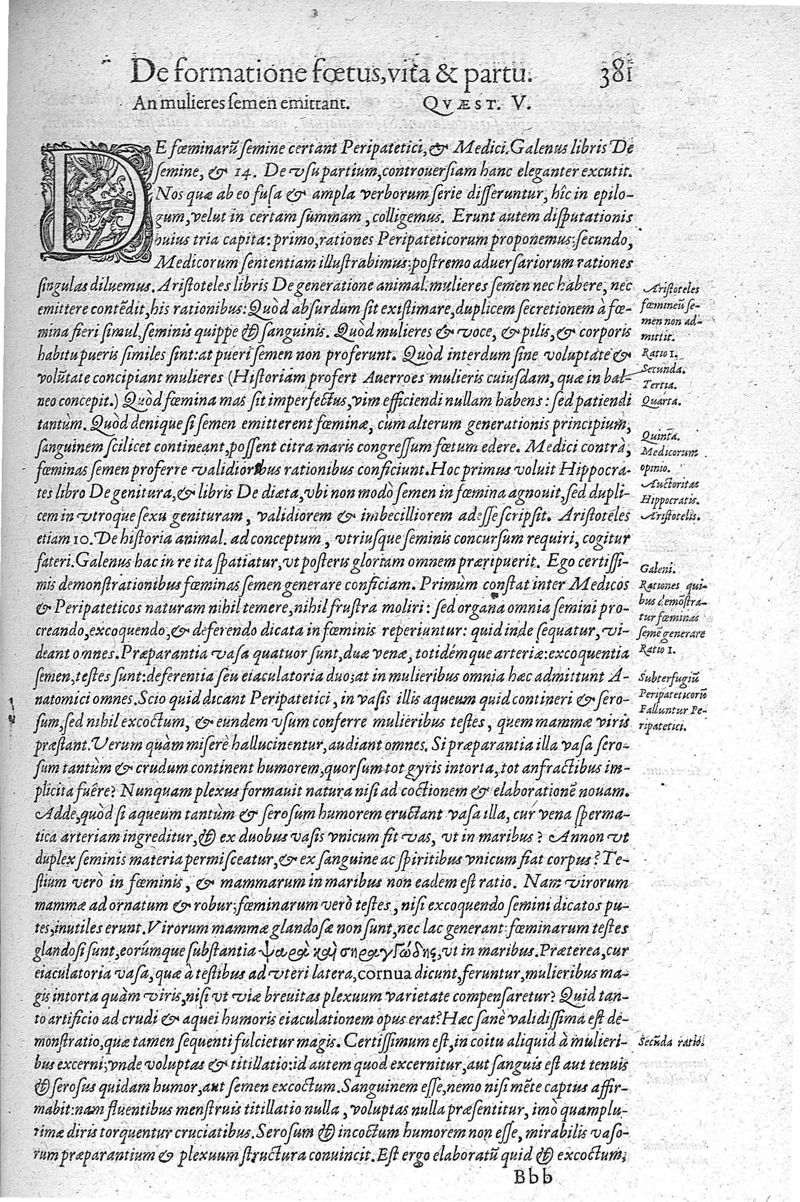 De formatione fœtus, vita & partu. 381
An mulieres semen emittant. QVÆST. V.
DE fœminarũ semine certant Peripatetici, & Medici. Galenus libris De
semine, & 14. De vsu partium, controuersiam hanc eleganter excutit.
Nos quæ ab eo fusa & ampla verborum serie disseruntur, hîc in epilo-
gum, velut in certam summam, colligemus. Erunt autem disputationis
huius tria capita: primo, rationes Peripateticorum proponemus: secundo,
Medicorum sententiam illustrabimus: postremo aduersariorum rationes
singulas diluemus. Aristoteles libris De generatione animal. mulieres semen nec habere, nec
emittere contẽdit, his rationibus: Quòd absurdum sit existimare, duplicem secretionem à fœ-
mina fieri simul, seminis quippe & sanguinis. Quòd mulieres & voce, & pilis, & corporis
habitu pueris similes sint: at pueri semen non proferunt. Quòd interdum sine voluptate &
volũtate concipiant mulieres (Historiam profert Auerroes mulieris cuiusdam, quæ in bal-
neo concepit.) Quòd fœmina mas sit imperfectus, vim efficiendi nullam habens: sed patiendi
tantùm. Quòd denique si semen emitterent fœminæ, cùm alterum generationis principium,
sanguinem scilicet contineant, possent citra maris congressum fœtum edere. Medici contrà,
fœminas semen proferre validioribus rationibus conficiunt. Hoc primus voluit Hippocra-
tes libro De genitura, & libris De diæta, vbi non modò semen in fœmina agnouit, sed dupli-
cem in vtroque sexu genituram, validiorem & imbecilliorem adesse scripsit. Aristoteles
etiam 10. De historia animal. ad conceptum, vtriusque seminis concursum requiri, cogitur
fateri. Galenus hac in re ita spatiatur, vt posteris gloriam omnem præripuerit. Ego certissi-
mis demonstrationibus fœminas semen generare conficiam. Primùm constat inter Medicos
& Peripateticos naturam nihil temere, nihil frustra moliri: sed organa omnia semini pro-
creando, excoquendo, & deferendo dicata in fœminis reperiuntur: quid inde sequatur, vi-
deant omnes. Præparantia vasa quatuor sunt, duæ venæ, totidémque arteriæ: excoquentia
semen, testes sunt: deferentia seu eiaculatoria duo: at in mulieribus omnia hæc admittunt A-
natomici omnes. Scio quid dicant Peripatetici, in vasis illis aqueum quid contineri & sero-
sum, sed nihil excoctum, & eundem vsum conferre mulieribus testes, quem mammæ viris
præstant. Verum quàm miserè hallucinentur, audiant omnes. Si præparantia illa vasa sero-
sum tantùm & crudum continent humorem, quorsum tot gyris intorta, tot anfractibus im-
plicita fuêre? Nunquam plexus formauit natura nisi ad coctionem & elaborationẽ nouam.
Adde, quòd si aqueum tantùm & serosum humorem eructant vasa illa, cur vena sperma-
tica arteriam ingreditur, & ex duobus vasis vnicum fit vas, vt in maribus? Annon vt
duplex seminis materia permisceatur, & ex sanguine ac spiritibus vnicum fiat corpus? Te-
stium verò in fœminis, & mammarum in maribus non eadem est ratio. Nam virorum
mammæ ad ornatum & robur: fœminarum verò testes, nisi excoquendo semini dicatos pu-
tes, inutiles erunt. Virorum mammæ glandosæ non sunt, nec lac generant: fœminarum testes
glandosi sunt, eorúmque substantia ψαρὰ καὶ σηραγγώδης, vt in maribus. Præterea, cur
eiaculatoria vasa, quæ à testibus ad vteri latera, cornua dicunt, feruntur, mulieribus ma-
gis intorta quàm viris, nisi vt viæ breuitas plexuum varietate compensaretur? Quid tan-
to artificio ad crudi & aquei humoris eiaculationem opus erat? Hæc sanè validissima est de-
monstratio, quæ tamen sequenti fulcietur magis. Certissimum est, in coitu aliquid à mulieri-
bus excerni; vnde voluptas & titillatio: id autem quod excernitur, aut sanguis est aut tenuis
& serosus quidam humor, aut semen excoctum. Sanguinem esse, nemo nisi mẽte captus affir-
mabit: nam fluentibus menstruis titillatio nulla, voluptas nulla præsentitur, imò quamplu-
rimæ diris torquentur cruciatibus. Serosum & incoctum humorem non esse, mirabilis vaso-
rum præparantium & plexuum structura conuincit. Est ergo elaboratũ quid & excoctum,
Bbb
Aristoteles
fœmineũ se-
men non ad-
mittit.
Ratio 1.
Secunda.
Tertia.
Quarta.
Quinta.
Medicorum
opinio.
Auctoritas
Hippocratis.
Aristotelis.
Galeni.
Rationes qui-
bus demõstra-
tur fœminas
semẽ generare
Ratio 1.
Subterfugiũ
Peripateticorũ
Falluntur Pe-
ripatetici.
Secũda ratio.